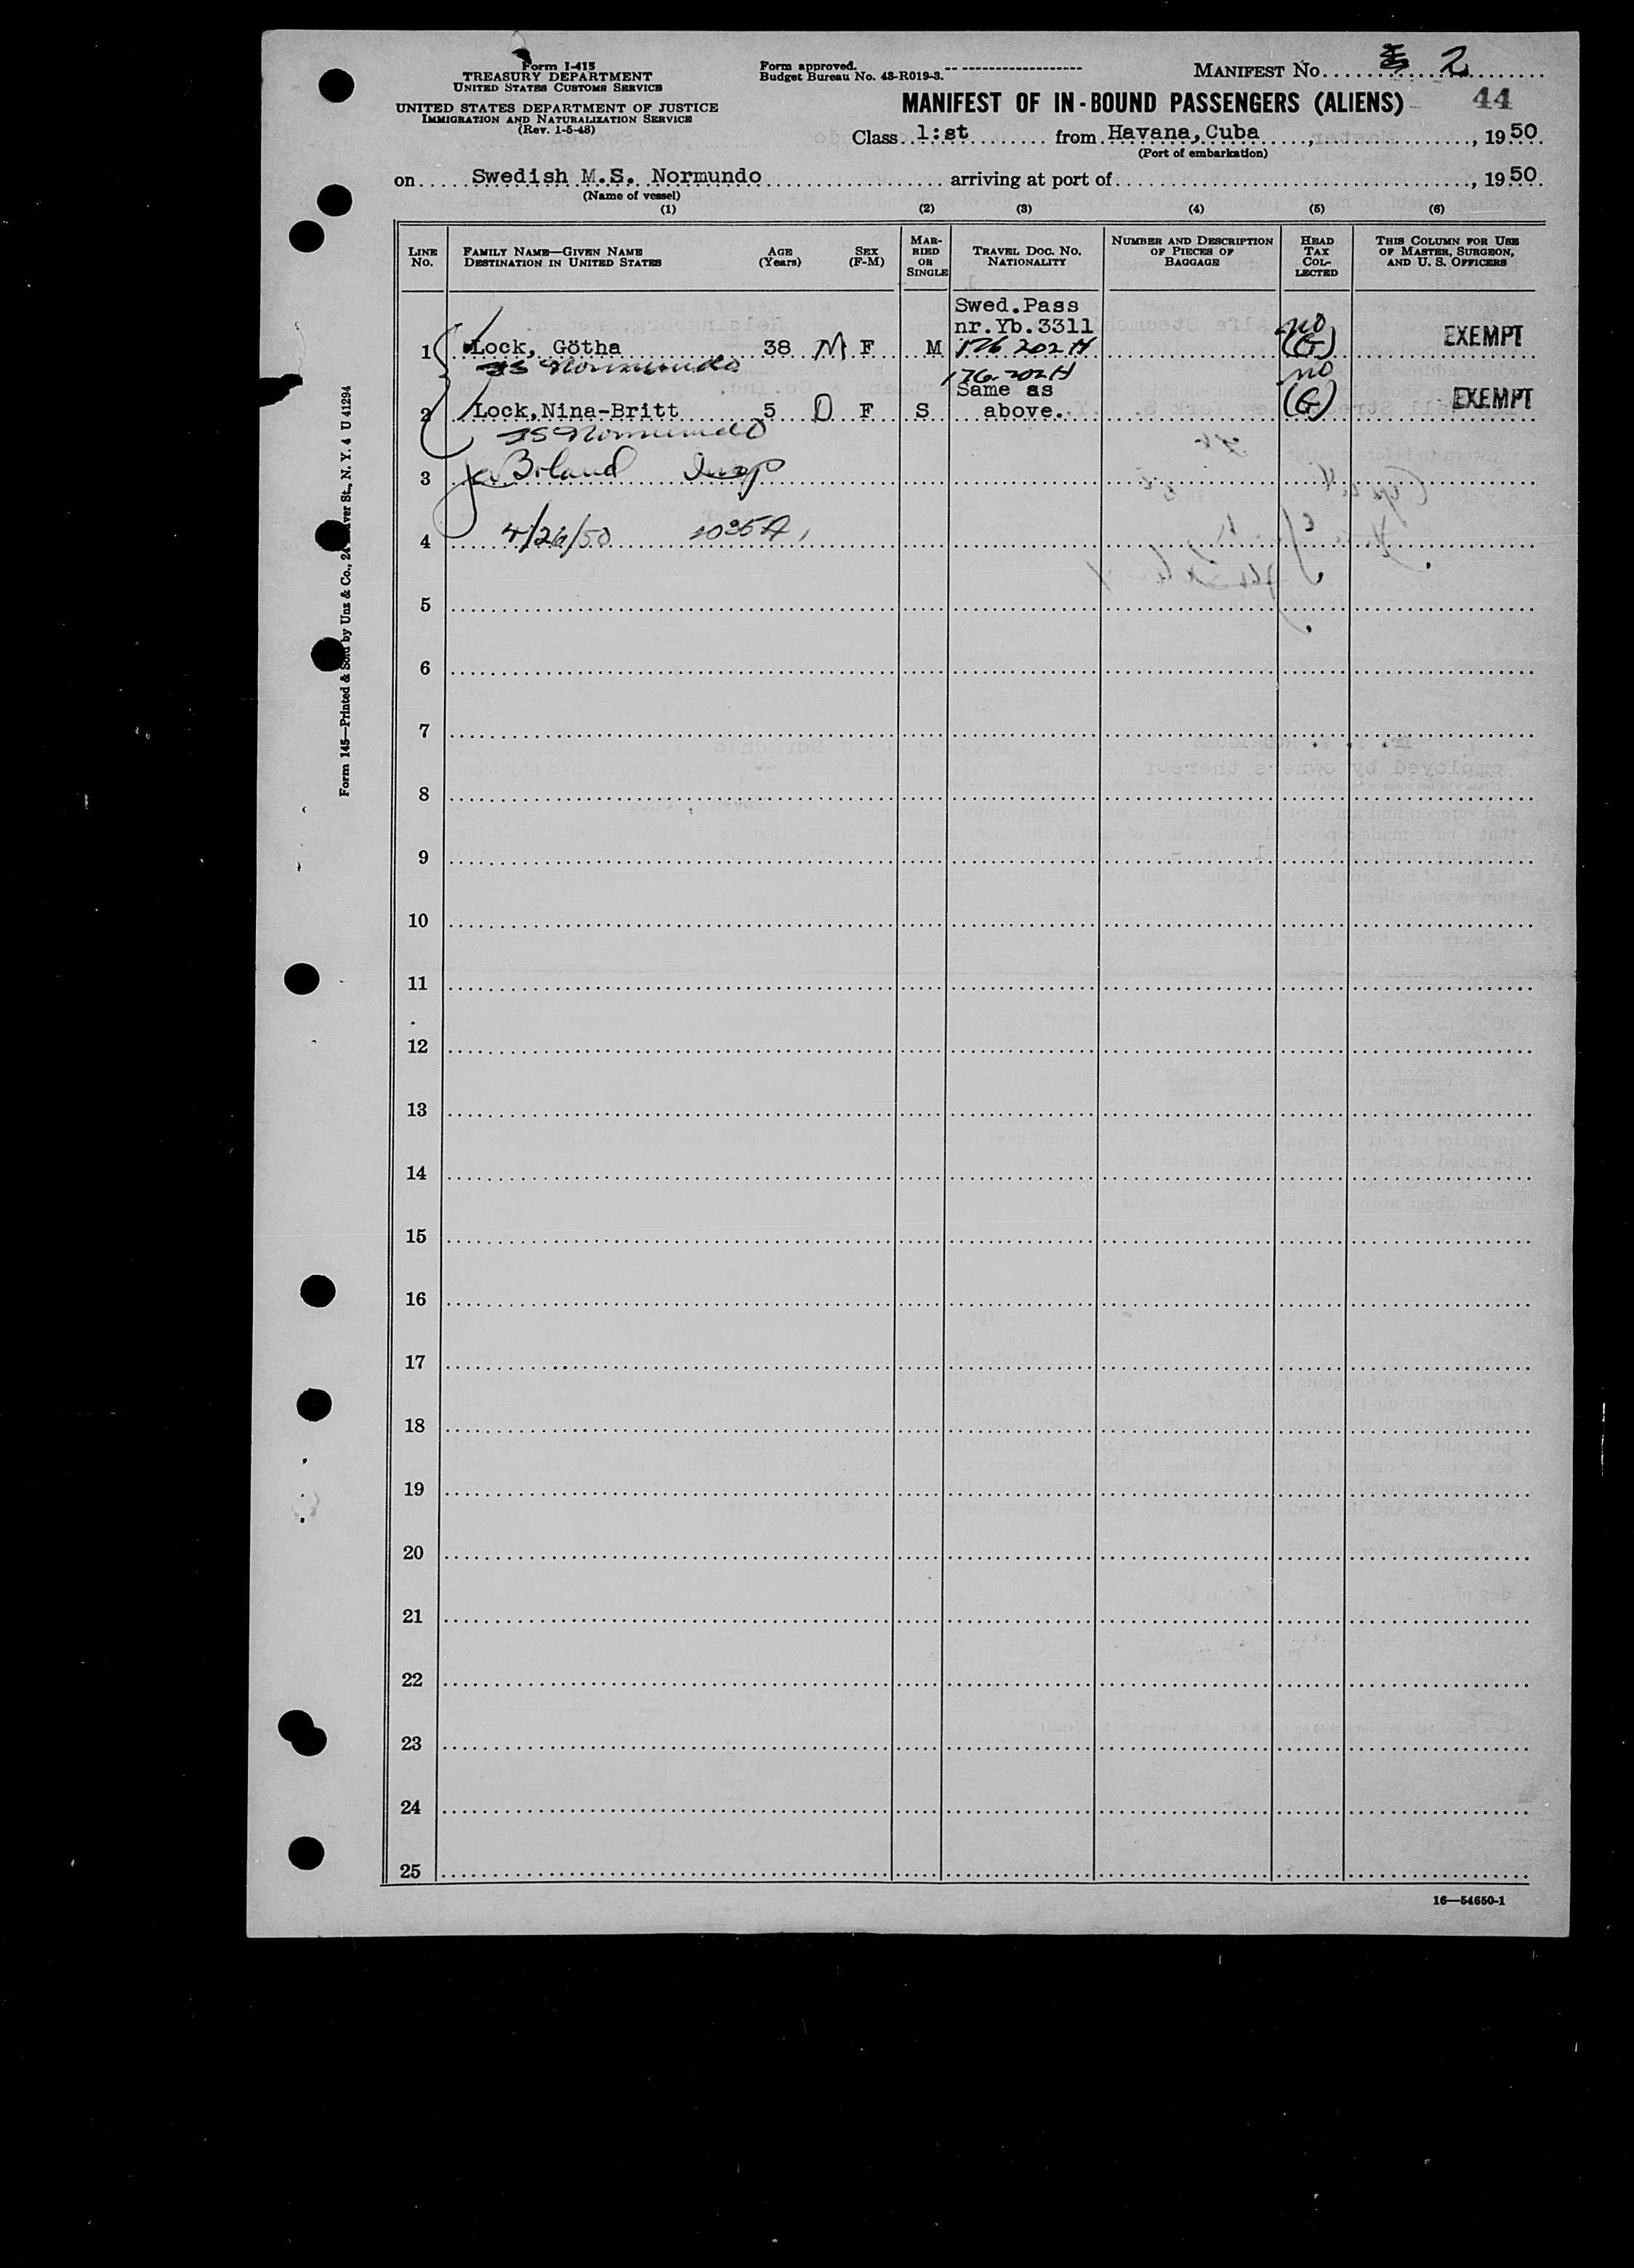 Form I-415
TREASURY DEPARTMENT
UNITED STATES CUSTOMS SERVICE
UNITED STATES DEPARTMENT OF JUSTICE
IMMIGRATION AND NATURALIZATION SERVICE
(Rev. 1-5-48)
Form approved.
Budget Bureau No. 43-R019-3.
MANIFEST NO. 2
MANIFEST OF IN-BOUND PASSENGERS (ALIENS) 44
Class 1:st from Havana, Cuba, 1950
(Port of embarkation)
on Swedish M.S. Normundo arriving at port of, 1950
(Name of vessel)
(1) (2) (3) (4) (5) (6)
LINE NO.
FAMILY NAME—GIVEN NAME
DESTINATION IN UNITED STATES
AGE (Years)
SEX (F-M)
MARRIED OR SINGLE
TRAVEL DOC. NO. NATIONALITY
NUMBER AND DESCRIPTION OF PIECES OF BAGGAGE
HEAD TAX COLLECTED
THIS COLUMN FOR USE OF MASTER, SURGEON, AND U. S. OFFICERS
Swed.Pass
nr.Yb.3311
1 Lock, Götha 38 M F M 176 202 H no (G) EXEMPT
SS Normundo
176 202 H
Same as
2 Lock,Nina-Britt 5 D F S above. no (G) EXEMPT
SS Normundo
3 Insp
4 4/26/50 1035A
5
6
7
8
9
10
11
12
13
14
15
16
17
18
19
20
21
22
23
24
25
16—54650-1
Form 145—Printed & Sold by Unz & Co., 24 Beaver St., N. Y. 4 U 41294